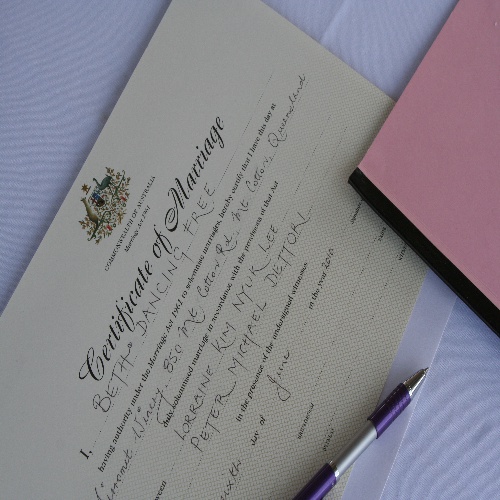 COMMONWEALTH OF AUSTRALIA
Marriage Act 1961
Certificate of Marriage
I, BETH DANCING TREE
having authority under the Marriage Act 1961 to solemnise marriages, hereby certify that I have this day at
Winery 850 Mt Cotton Rd. Mt Cotton, Queensland
duly solemnised marriage in accordance with the provisions of that Act
LORRAINE KIM NYUK LEE
PETER MICHAEL DETTORI
in the presence of the undersigned witnesses
day of June in the year 2010